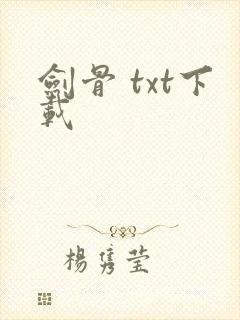 劍骨 txt下
載
楊雋莹